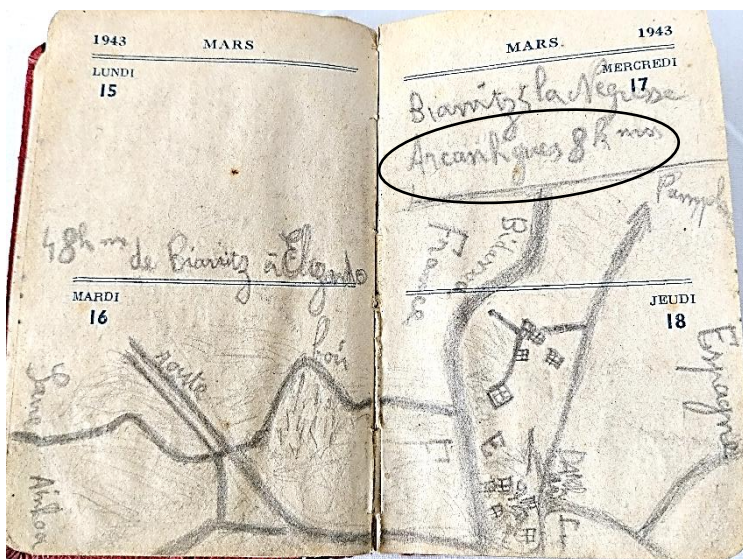 1943 MARS
LUNDI
15
48h m de Biarritz à Elizondo
MARDI
16
route
bois
Sare
MARS. 1943
MERCREDI
17
Biarritz la Négresse
Arcangues 8h
Pampl
Bidassoa
France
JEUDI
18
Espagne